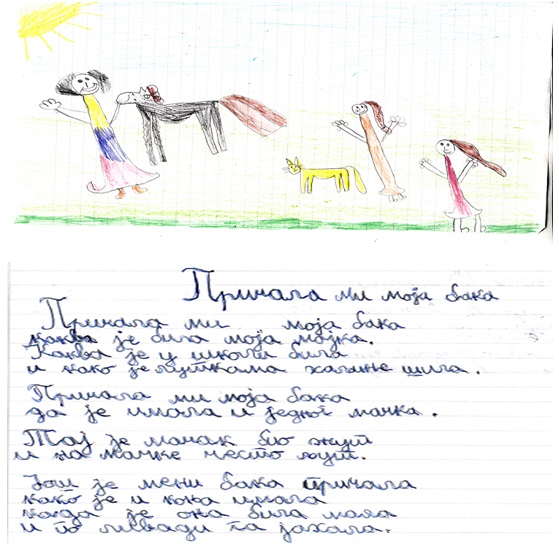 Причала ми моја бака
Причала ми моја бака
каква је била моја мајка.
Каква је у школи била
и како је луткама хаљине шила.
Причала ми моја бака
да је имала и једног мачка.
Тај је мачак био жут
и на мачке често љут.
Још је мени бака причала
како је и коња имала
када је она била мала
и по ливади га јахала.